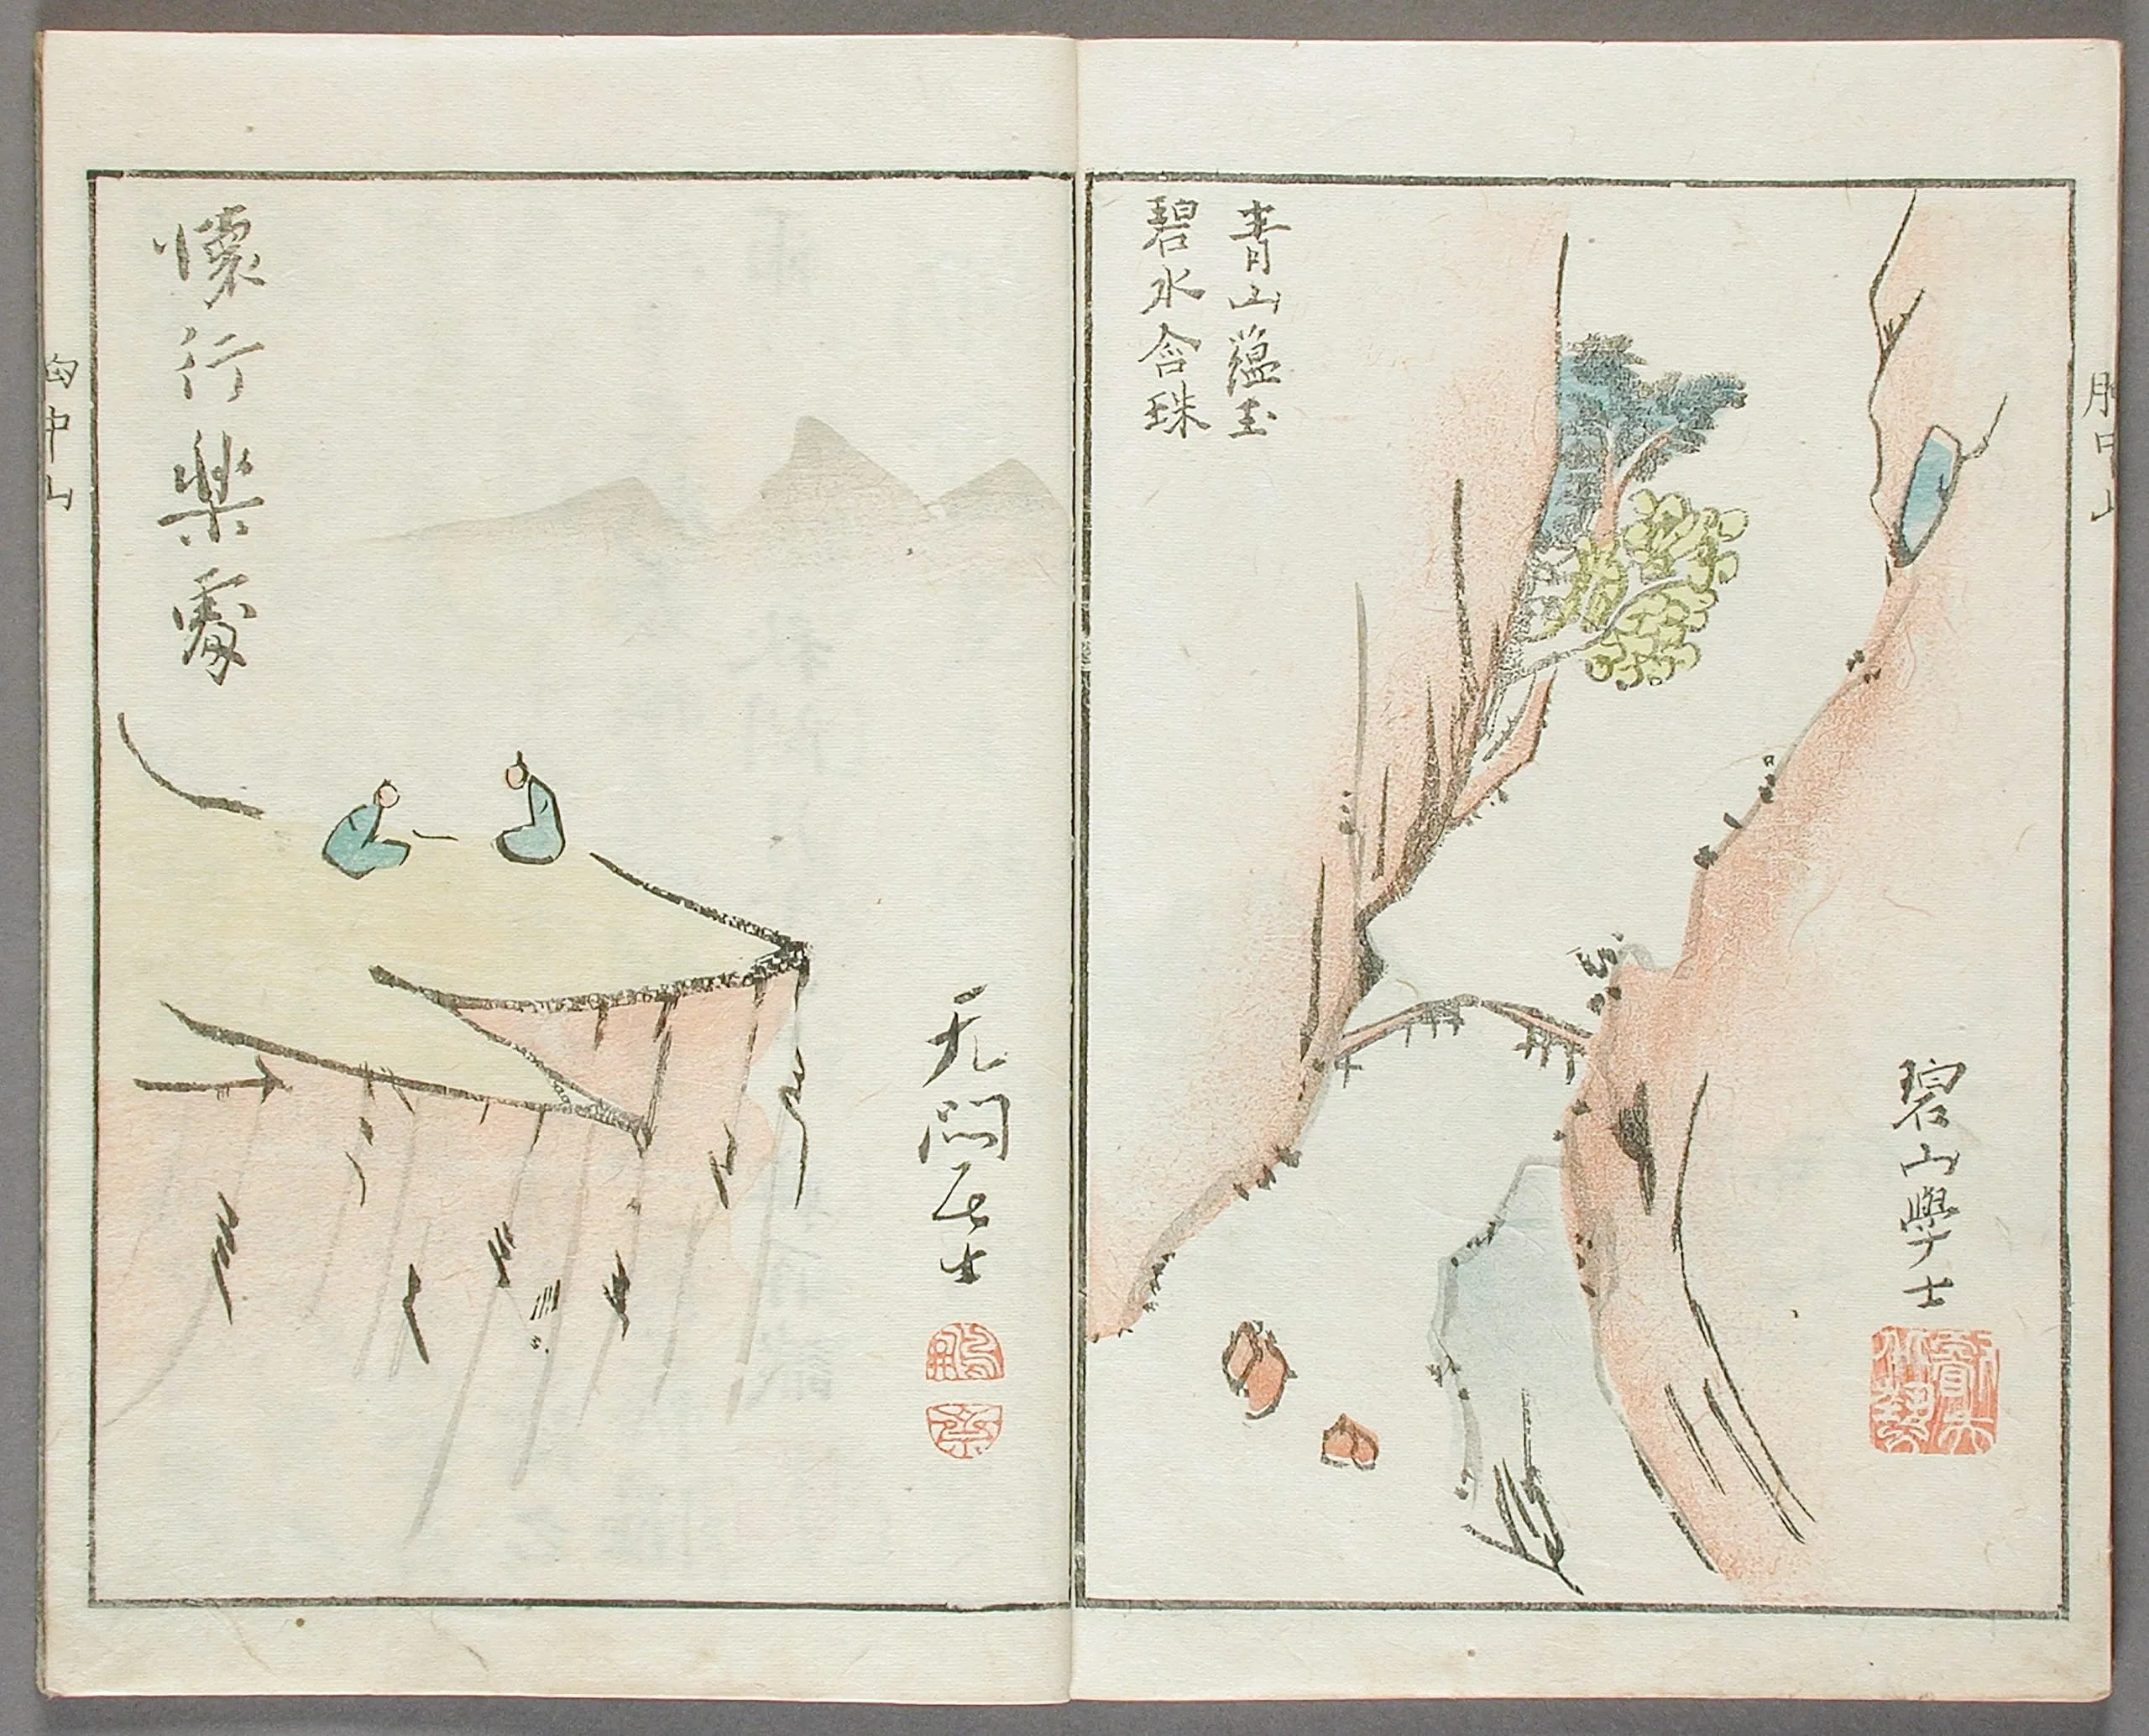 青山蘊玉
碧水含珠
碧山學士
懐行樂處
无悶居士
胸中山